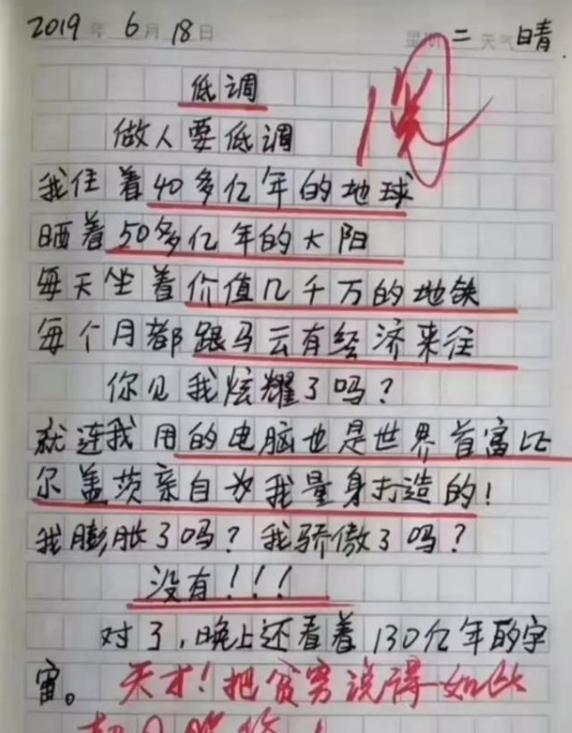 2019年 6月 18日 星期二 天气 晴
低调
阅
做人要低调
我住着40多亿年的地球
晒着50多亿年的太阳
每天坐着价值几千万的地铁
每个月都跟马云有经济来往
你见我炫耀了吗？
就连我用的电脑也是世界首富比
尔盖茨亲自为我量身打造的！
我膨胀了吗？我骄傲了吗？
没有！！！
对了，晚上还看着130亿年的宇
宙。
天才！把贫穷说得如此